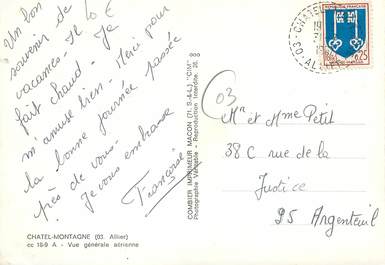 Un bon
10 €
souvenir de
vacances. Il
fait chaud. Je
m'amuse bien. Merci pour
la bonne journée passée
près de vous.
Je vous embrasse
Françoise
CHATEL-MONTAGNE (03. Allier)
cc 18-9 A - Vue générale aérienne
COMBIER IMPRIMEUR MACON (71. S.-&-L.) "CIM"
Photographie Véritable - Reproduction Interdite.
03
Mr et Mme Petit
38 C rue de la
Justice
95 Argenteuil
03 - ALLIER
0,25